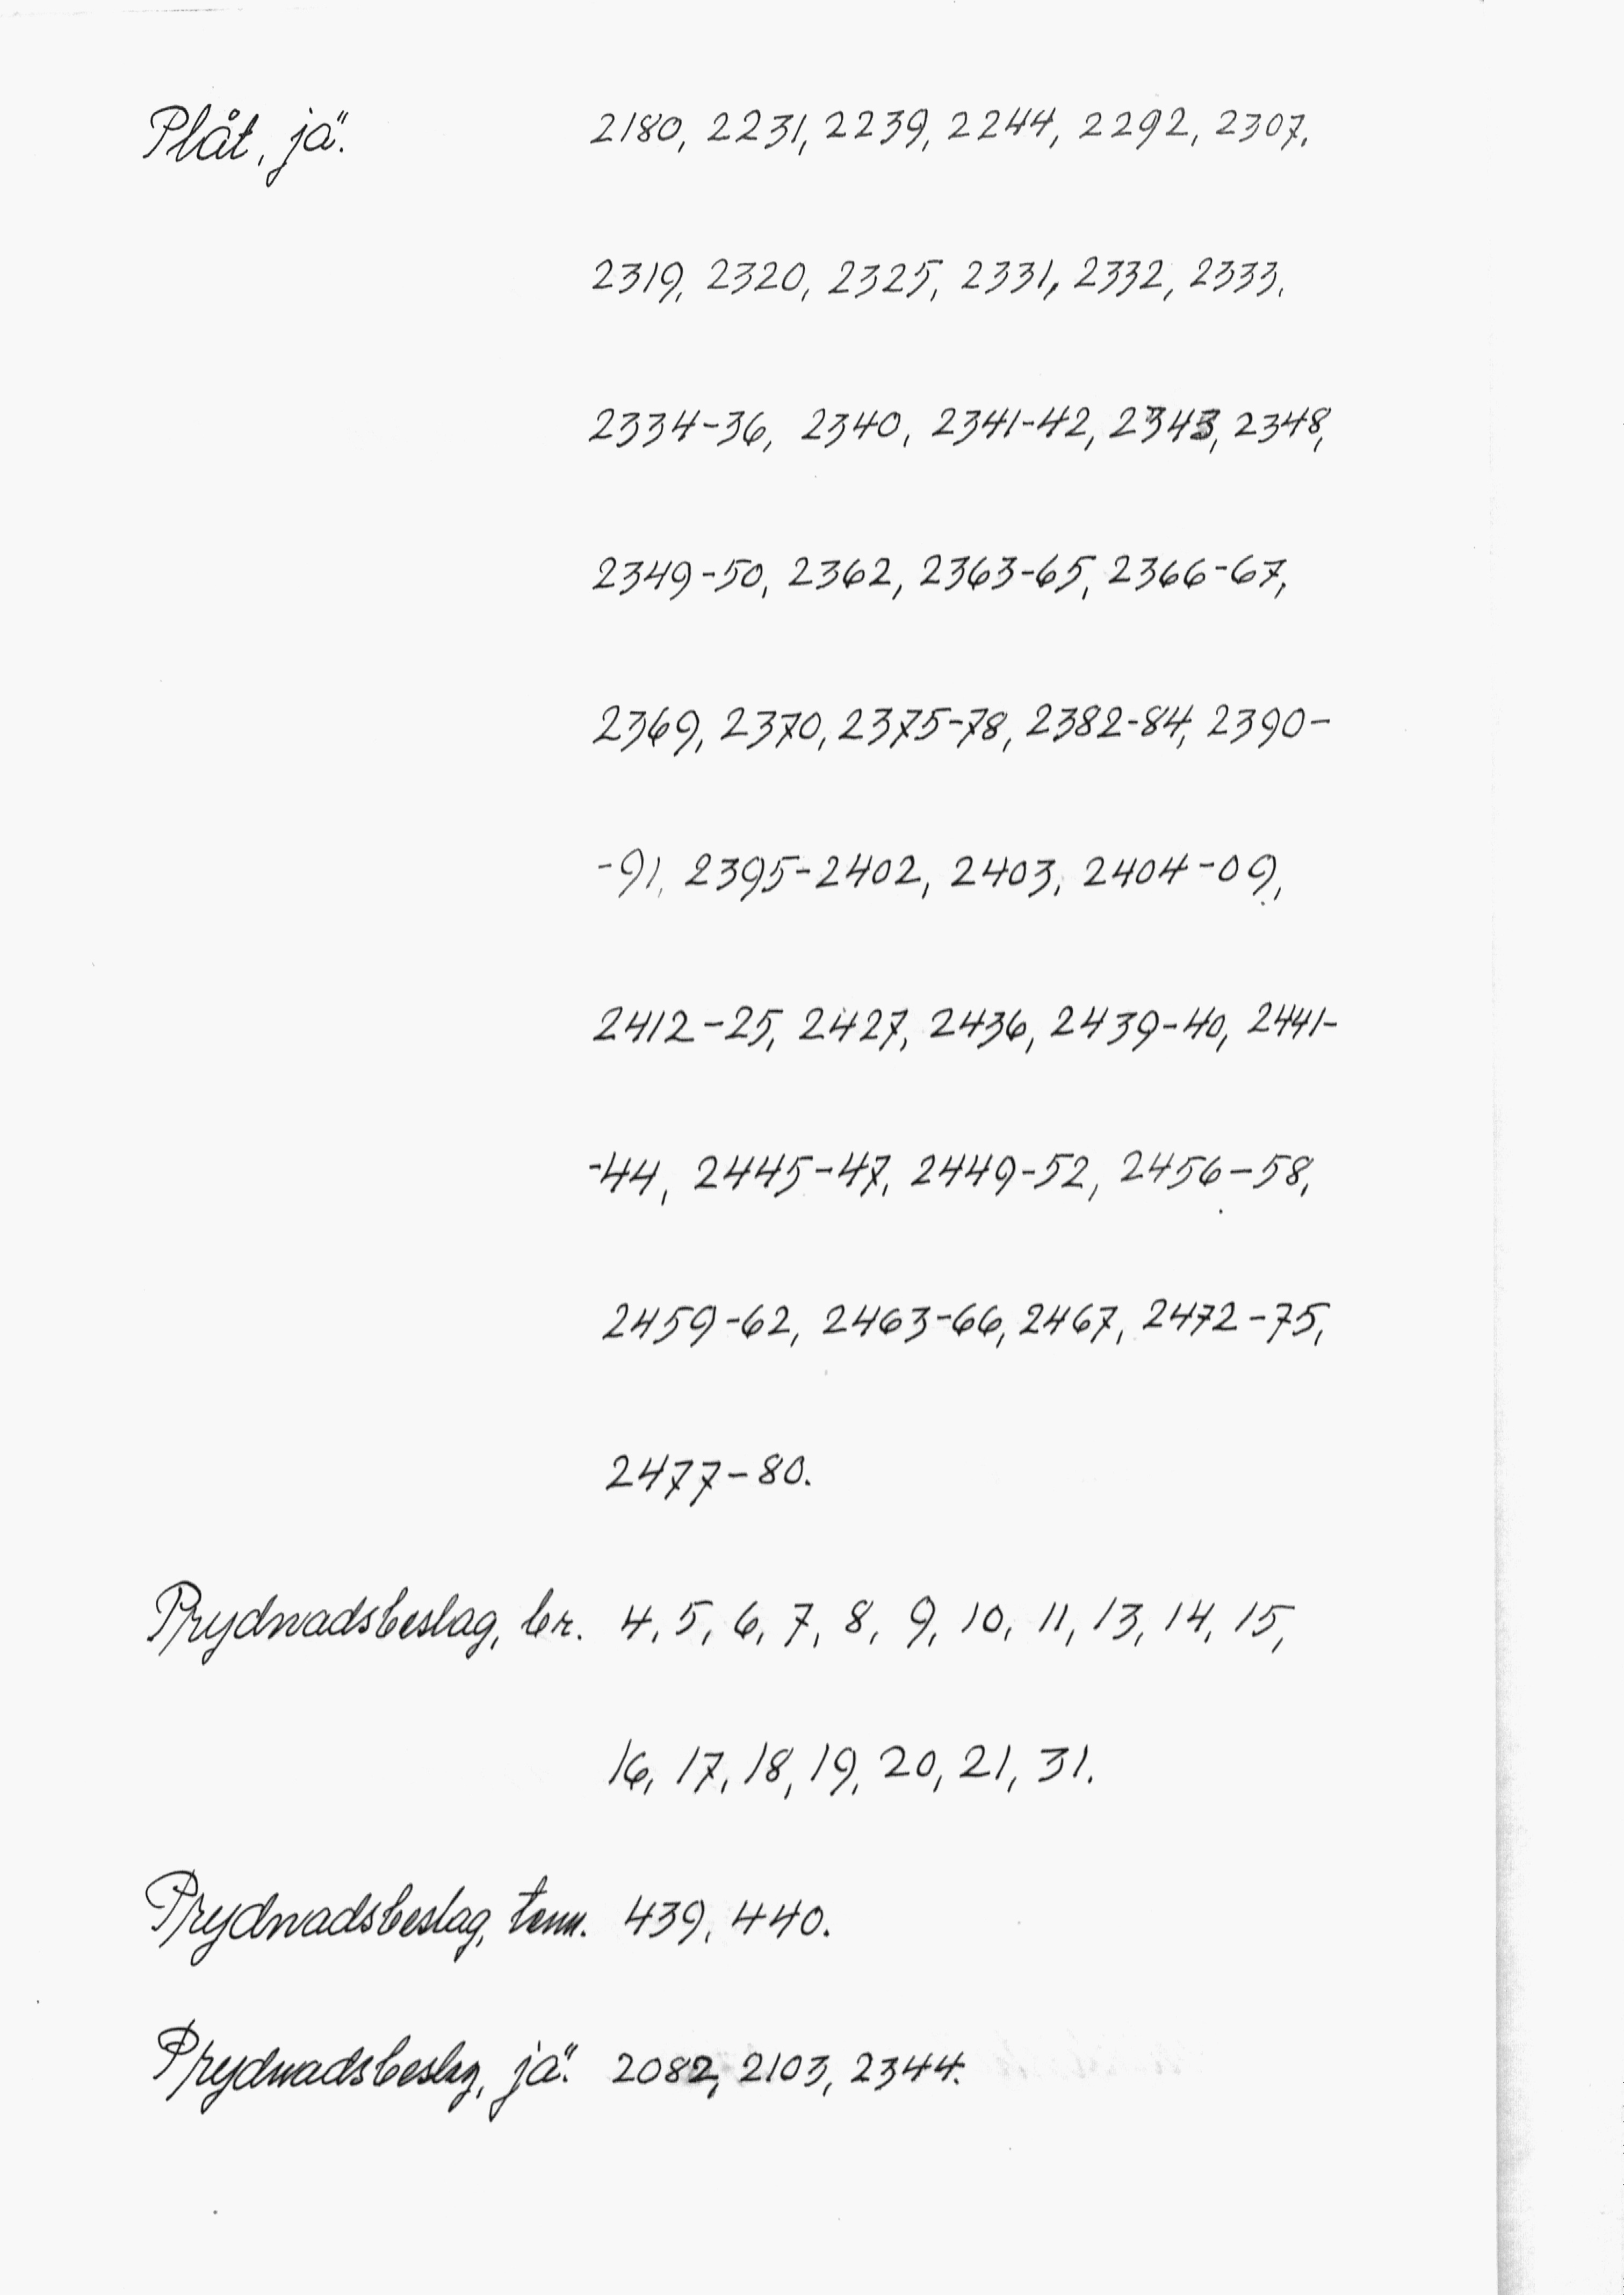 Plåt, jä. 2180, 2231, 2239, 2244, 2292, 2307,
2319, 2320, 2325, 2331, 2332, 2333,
2334-36, 2340, 2341-42, 2343, 2348,
2349-50, 2362, 2363-65, 2366-67,
2369, 2370, 2375-78, 2382-84, 2390-
-91, 2395-2402, 2403, 2404-09,
2412-25, 2427, 2436, 2439-40, 2441-
-44, 2445-47, 2449-52, 2456-58,
2459-62, 2463-66, 2467, 2472-75,
2477-80.
Prydnadsbeslag, br. 4, 5, 6, 7, 8, 9, 10, 11, 13, 14, 15,
16, 17, 18, 19, 20, 21, 31.
Prydnadsbeslag, tenn. 439, 440.
Prydnadsbeslag, jä. 2082, 2103, 2344.